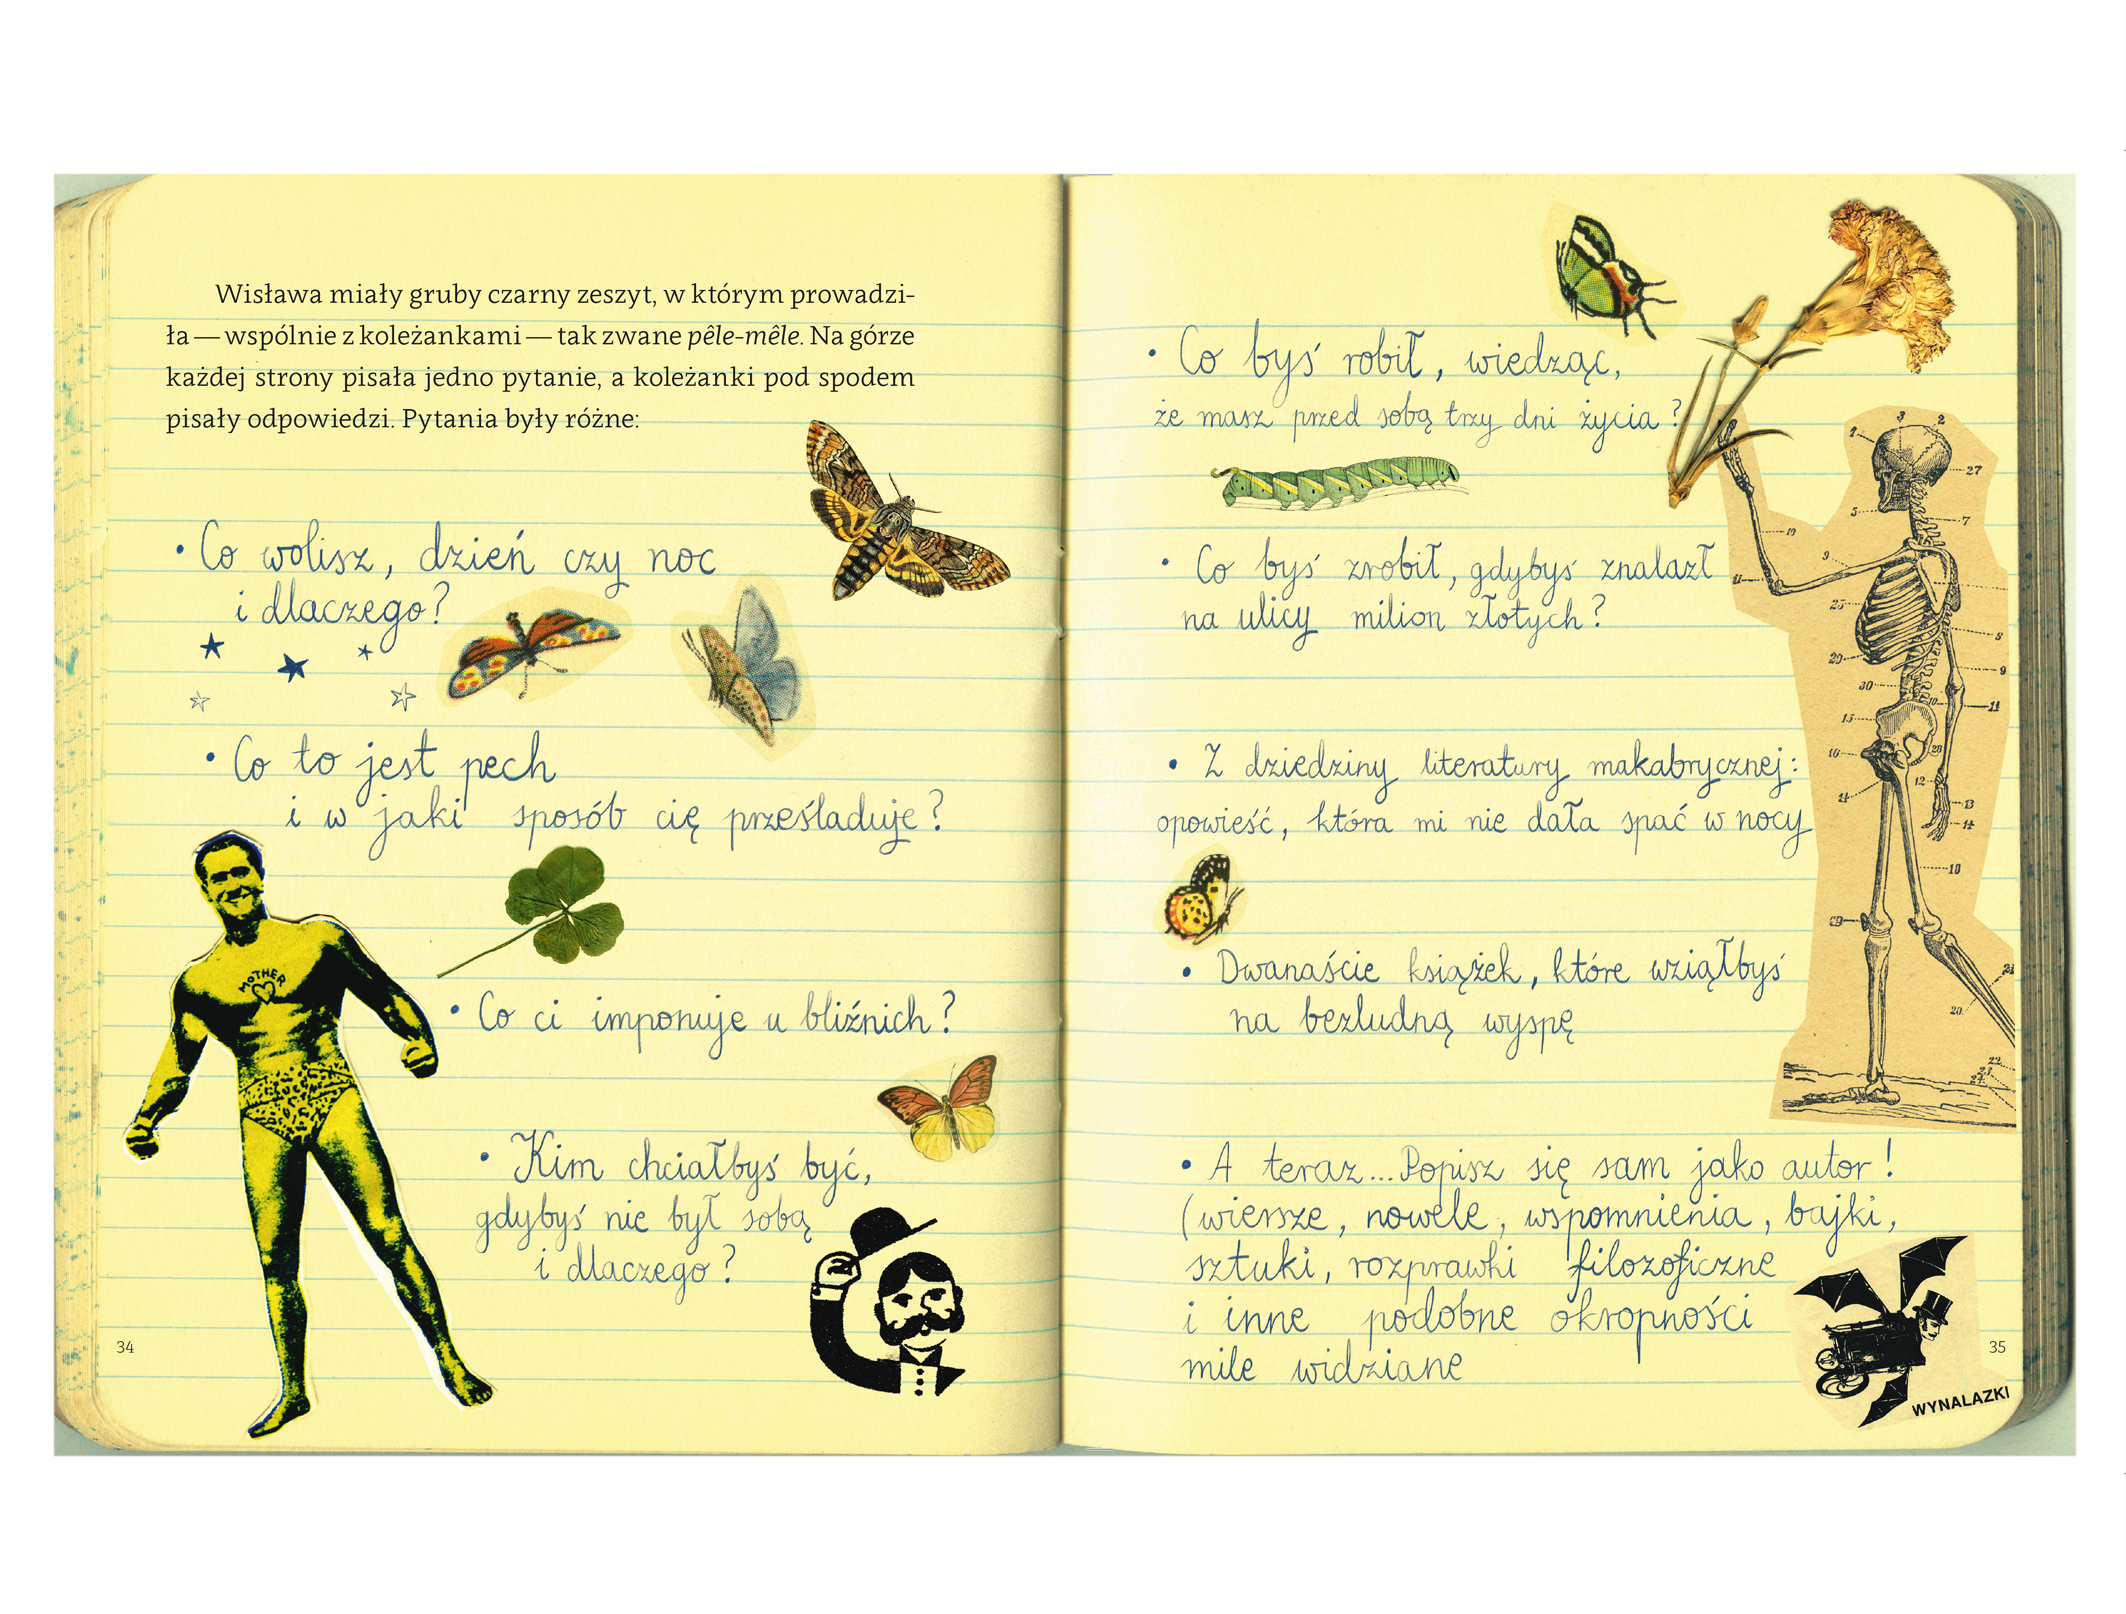 Wisława miały gruby czarny zeszyt, w którym prowadzi-
ła — wspólnie z koleżankami — tak zwane pêle-mêle. Na górze
każdej strony pisała jedno pytanie, a koleżanki pod spodem
pisały odpowiedzi. Pytania były różne:
• Co wolisz, dzień czy noc
i dlaczego?
• Co to jest pech
i w jaki sposób cię prześladuje?
MOTHER
• Co ci imponuje u bliźnich?
• Kim chciałbyś być,
gdybyś nie był sobą
i dlaczego?
34
• Co byś robił, wiedząc,
że masz przed sobą trzy dni życia?
• Co byś zrobił, gdybyś znalazł
na ulicy milion złotych?
• Z dziedziny literatury makabrycznej:
opowieść, która mi nie dała spać w nocy
• Dwanaście książek, które wziąłbyś
na bezludną wyspę
• A teraz... Popisz się sam jako autor!
(wiersze, nowele, wspomnienia, bajki,
sztuki, rozprawki filozoficzne
i inne podobne okropności
mile widziane
WYNALAZKI
35